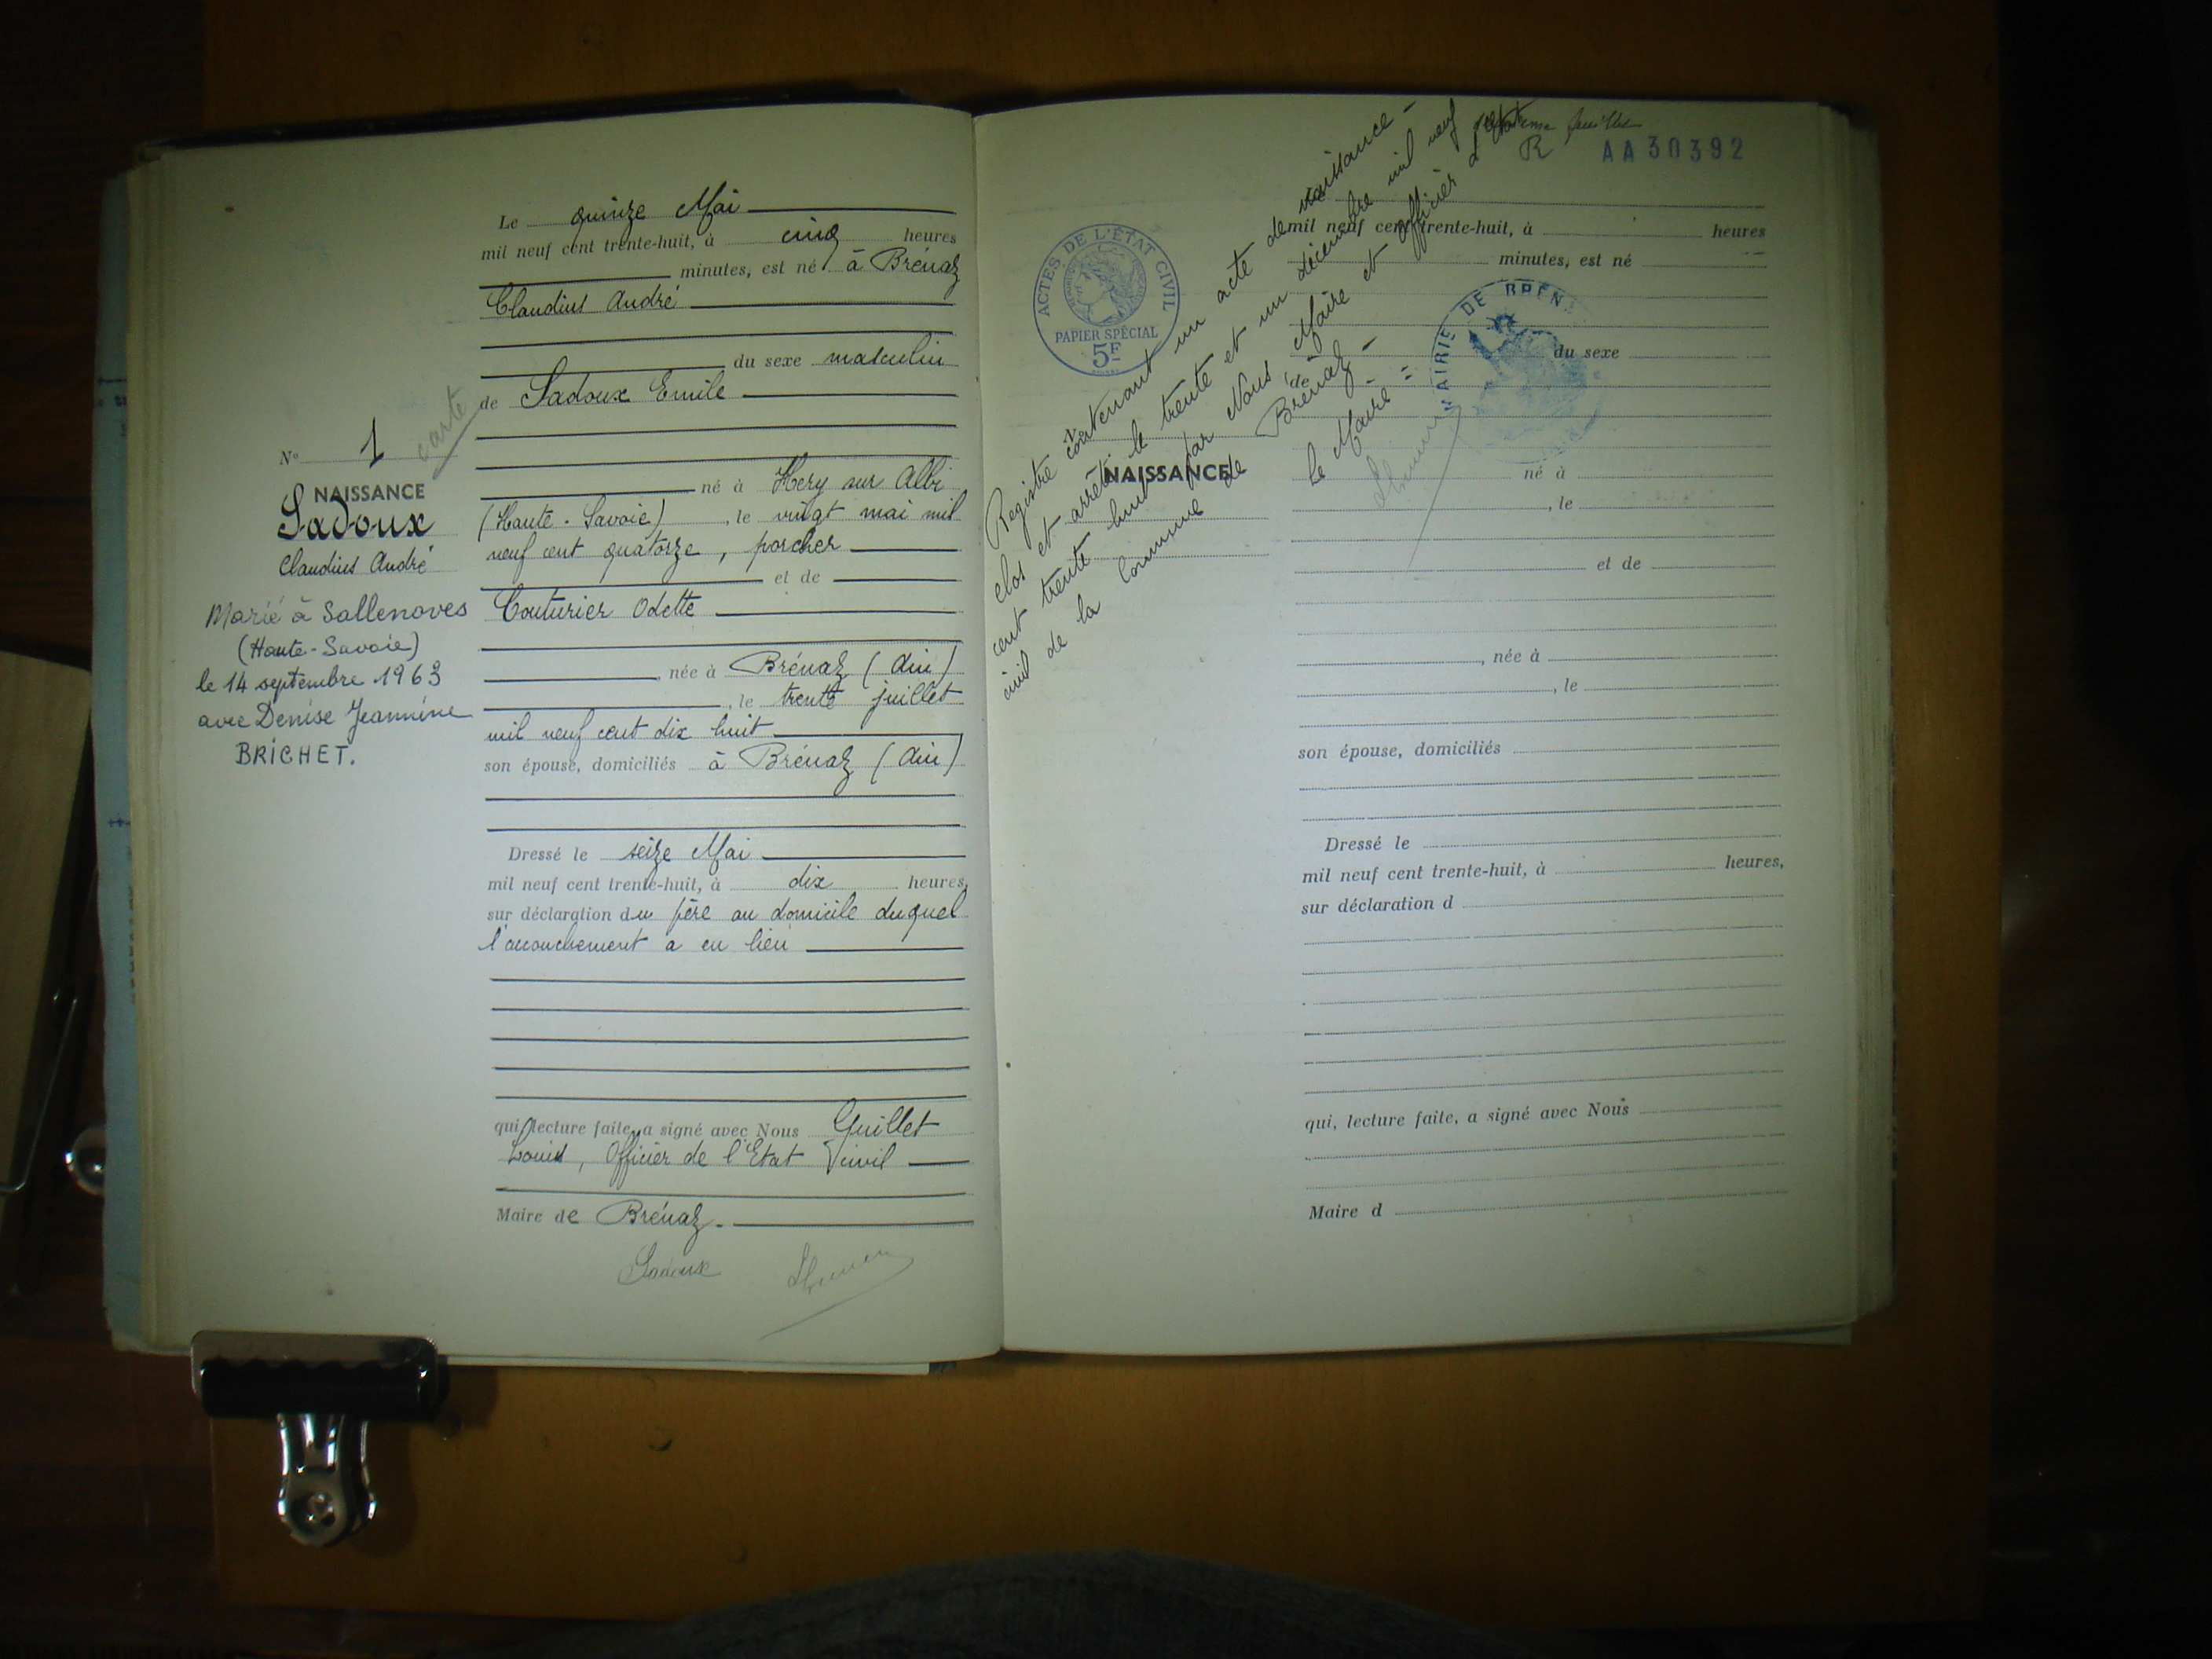 Le quinze Mai
mil neuf cent trente-huit, à cinq heures
minutes, est né à Brénaz
Claudius André
du sexe masculin
de Sadoux Emile
né à Héry sur Albi
(Haute-Savoie), le vingt mai mil
neuf cent quatorze, porcher
et de
Couturier Odette
, née à Brénaz (Ain)
, le trente juillet
mil neuf cent dix huit
son épouse, domiciliés à Brénaz (Ain)
Dressé le seize Mai
mil neuf cent trente-huit, à dix heures,
sur déclaration du père au domicile duquel
l'accouchement a eu lieu
qui, lecture faite, a signé avec Nous Guillet
Louis, Officier de l'Etat Civil
Maire de Brénaz.
Sadoux
carte
N° 1
NAISSANCE
Sadoux
Claudius André
Marié à Sallenoves
(Haute-Savoie)
le 14 septembre 1963
avec Denise Jeannine
BRICHET.
feuillet
AA 30392
ACTES DE L'ÉTAT CIVIL
PAPIER SPÉCIAL
5F
Registre contenant un acte de naissance -
clos et arrêté le trente et un décembre mil neuf
cent trente huit par Nous Maire et Officier d'Etat
civil de la Commune de Brénaz -
Le Maire
MAIRIE DE BRÉN
N°
NAISSANCE
mil neuf cent trente-huit, à heures
minutes, est né
du sexe
de
né à
, le
et de
, née à
, le
son épouse, domiciliés
Dressé le
mil neuf cent trente-huit, à heures,
sur déclaration d
qui, lecture faite, a signé avec Nous
Maire d